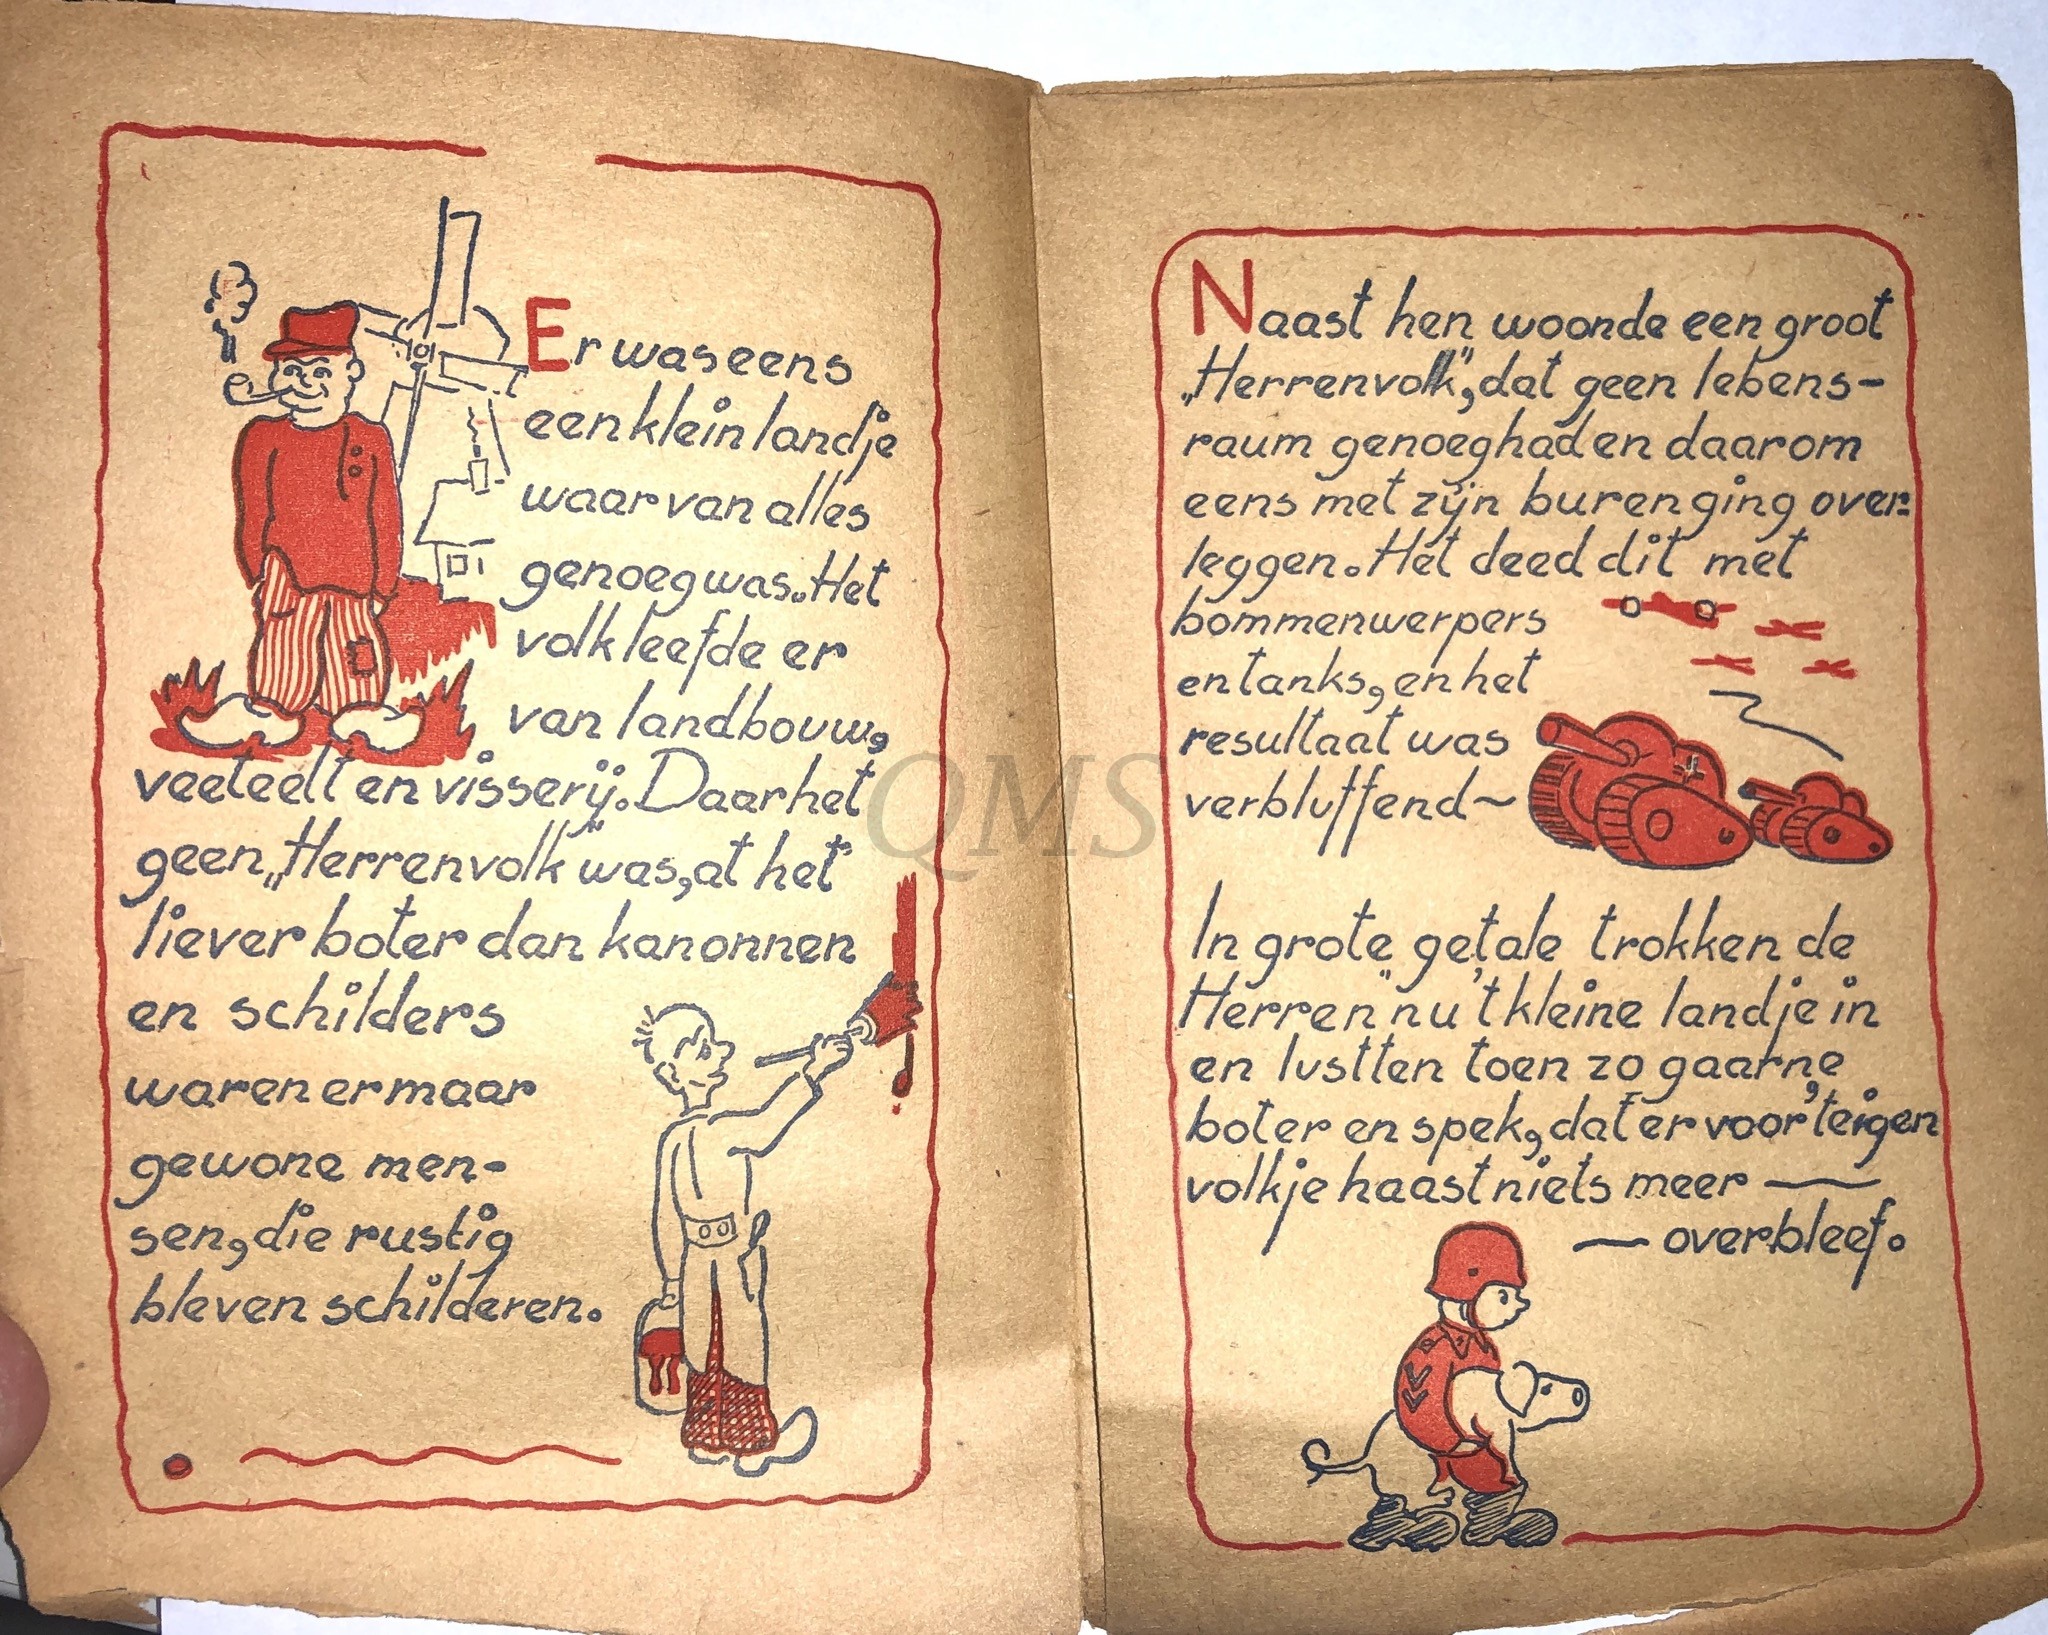 Er was eens
een klein landje
waar van alles
genoeg was. Het
volk leefde er
van landbouw,
veeteelt en visserij. Daar het
geen „Herrenvolk" was, at het
liever boter dan kanonnen
en schilders
waren er maar
gewone men-
sen, die rustig
bleven schilderen.
QMS
Naast hen woonde een groot
„Herrenvolk", dat geen lebens-
raum genoeg had en daarom
eens met zijn buren ging over-
leggen. Het deed dit met
bommenwerpers
en tanks, en het
resultaat was
verbluffend~
In grote getale trokken de
„Herren" nu 't kleine landje in
en lustten toen zo gaarne
boter en spek, dat er voor 't eigen
volkje haast niets meer —
— overbleef.